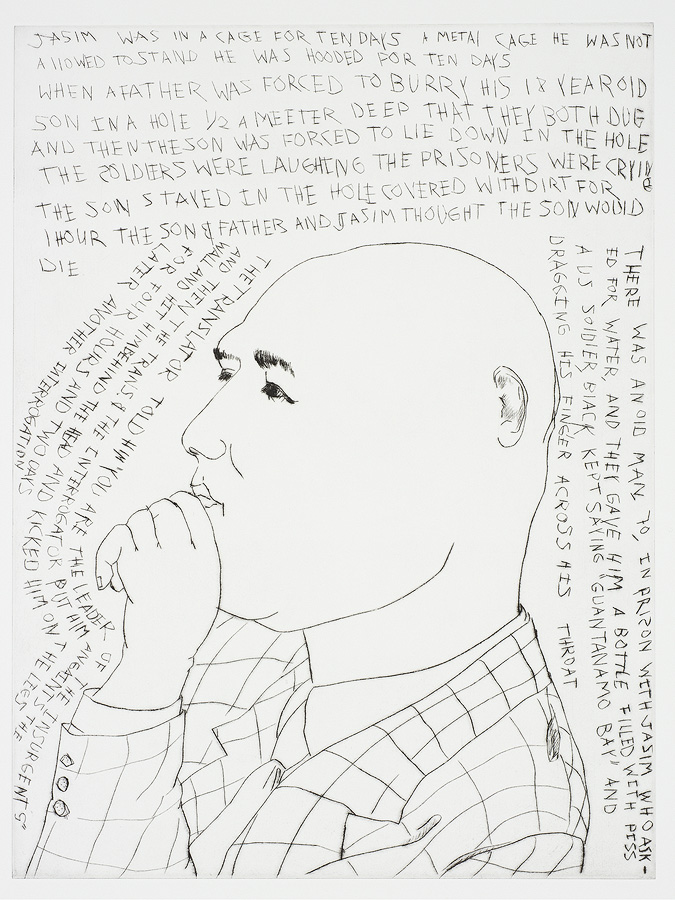 JASIM WAS IN A CAGE FOR TEN DAYS A METAL CAGE HE WAS NOT
ALLOWED TO STAND HE WAS HOODED FOR TEN DAYS
WHEN A FATHER WAS FORCED TO BURRY HIS 18 YEAR OLD
SON IN A HOLE 1/2 A MEETER DEEP THAT THEY BOTH DUG
AND THEN THE SON WAS FORCED TO LIE DOWN IN THE HOLE
THE SOLDIERS WERE LAUGHING THE PRISONERS WERE CRYING
THE SON STAYED IN THE HOLE COVERED WITH DIRT FOR
1 HOUR THE SON & FATHER AND JASIM THOUGHT THE SON WOULD
DIE
THERE WAS AN OLD MAN, 70, IN PRIZON WITH JASIM WHO ASK-
ED FOR WATER, AND THEY GAVE HIM A BOTTLE FILLED WITH PESS
A US SOLDIER, BLACK KEPT SAYING "GUANTANAMO BAY" AND
DRAGGING HIS FINGER ACROSS HIS THROAT
THE TRANSLATOR TOLD HIM "YOU ARE THE LEADER OF THE INSURGENTS"
AND THEN THE TRANS. & THE ENTERROGATOR PUT HIM AGAINST THE
WALL AND HIT HIM BEHIND THE HEAD AND KICKED HIM ON THE LEGS
FOR FOUR HOURS AND TWO DAYS
LATER ANOTHER INTERROGATION